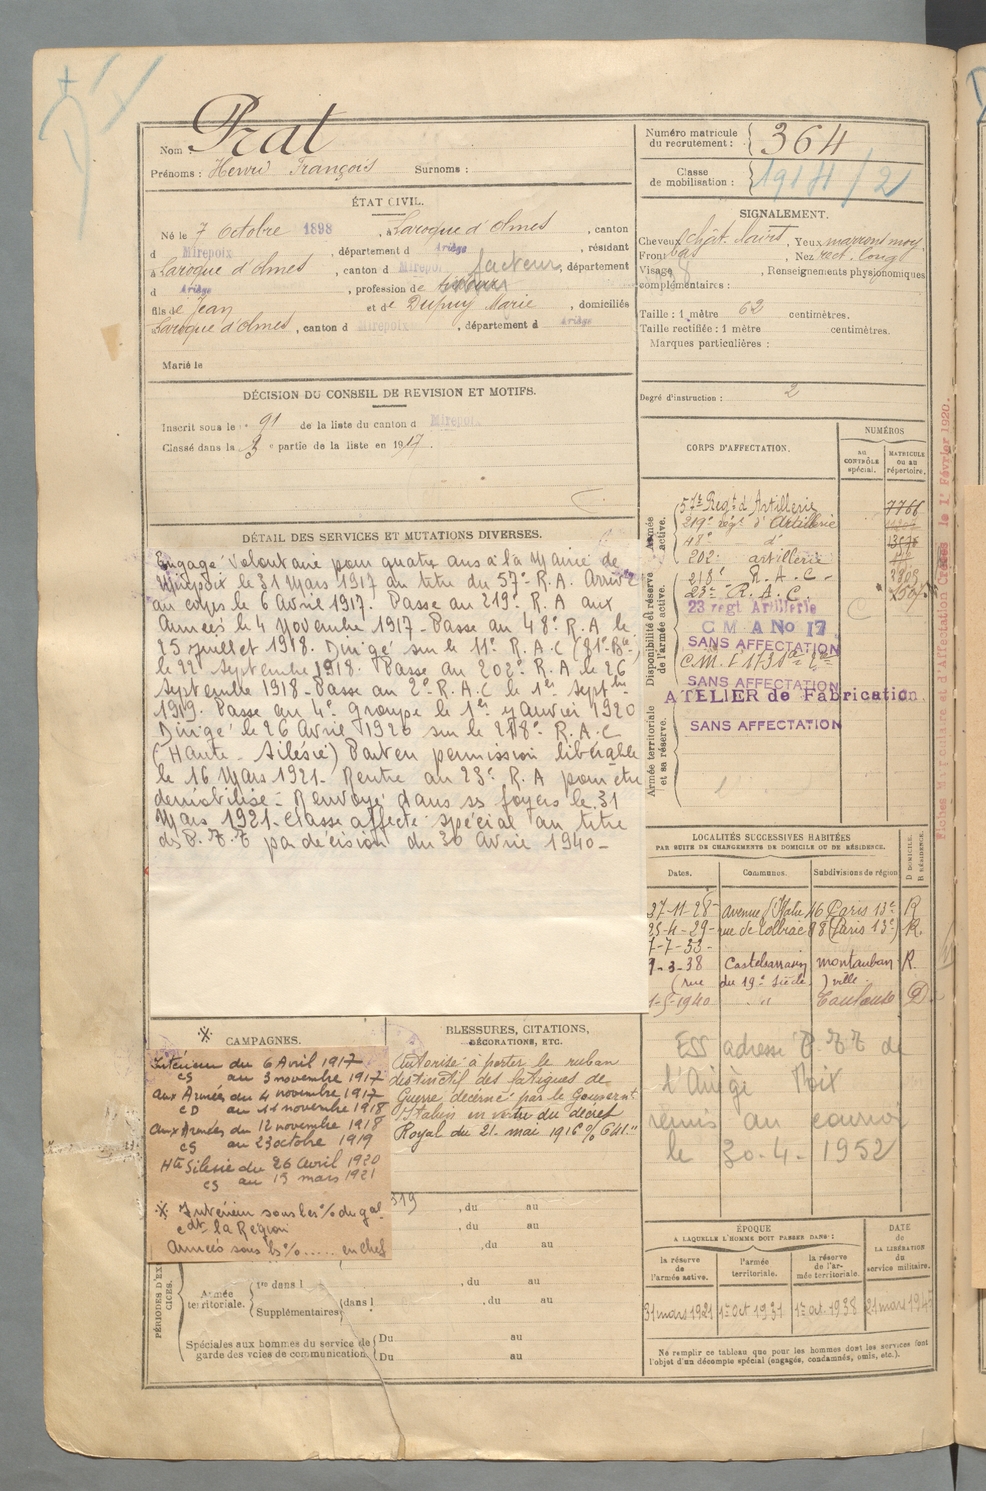 Nom : Prat
Prénoms : Henri François Surnoms :
Numéro matricule du recrutement : 364
Classe de mobilisation : 1914/2
ÉTAT CIVIL.
Né le 7 Octobre 1898, à Laroque d'Olmes, canton
d Mirepoix, département d Ariège, résidant
à Laroque d'Olmes, canton d Mirepoix, département
d Ariège, profession de facteur
fils de Jean et de Dupuy Marie, domiciliés
Laroque d'Olmes, canton d Mirepoix, département d Ariège
Marié le
SIGNALEMENT.
Cheveux chât. clairs, Yeux marrons moy
Front bas Nez rect. long
Visage , Renseignements physionomiques
complémentaires :
Taille : 1 mètre 62 centimètres.
Taille rectifiée : 1 mètre centimètres.
Marques particulières :
Degré d'instruction : 2
DÉCISION DU CONSEIL DE REVISION ET MOTIFS.
Inscrit sous le n° 91 de la liste du canton d Mirepoix
Classé dans la 3e partie de la liste en 1917.
DÉTAIL DES SERVICES ET MUTATIONS DIVERSES.
Engagé Volontaire pour quatre ans à la Mairie de
Mirepoix le 31 Mars 1917 au titre du 57e R.A. Arrivé
au corps le 6 Avril 1917. Passe au 219e R.A aux
Armées le 4 Novembre 1917 - Passe au 48e R.A le
25 juillet 1918. Dirigé sur le 11e R.A.C (81e Bie)
le 22 Septembre 1918. Passe au 202e R.A le 26
Septembre 1918 - Passe au 2e R.A.C le 1er Septbre
1919. Passe au 4e groupe le 1er Janvier 1920
Dirigé le 26 Avril 1920 sur le 218e R.A.C
(Haute-Silésie) Part en permission libérable
le 16 Mars 1921 - Rentre au 23e R.A pour être
démobilisé - Renvoyé dans ses foyers le 31
Mars 1921 - Classe affecté spécial au titre
des P.T.T par décision du 30 Avril 1940 -
CORPS D'AFFECTATION.
NUMÉROS
AU CONTRÔLE spécial.
MATRICULE ou au répertoire.
Armée active.
57e Regt d'Artillerie 7766
219e régt d'Artillerie
48e d°
202e artillerie
218e R.A.C. 2809
23e R.A.C.
Disponibilité et réserve de l'armée active.
23 regt Artillerie
C M A No 17
SANS AFFECTATION
SANS AFFECTATION
ATELIER de Fabrication.
Armée territoriale et sa réserve.
SANS AFFECTATION
LOCALITÉS SUCCESSIVES HABITÉES
PAR SUITE DE CHANGEMENTS DE DOMICILE OU DE RÉSIDENCE.
Dates. Communes. Subdivisions de région
D DOMICILE. R RÉSIDENCE.
27-11-28 - avenue d'Italie 46 Paris 13e R
25-4-29 - rue de Tolbiac 98 (Paris 13e) R.
7-7-33 -
9-3-38 Castelsarrasin montauban R.
(rue du 19e Siècle) ville.
1-5-1940 " Toulouse D
ESS adresse P.T.T de
l'Ariège Foix
remis au courrier
le 30-4-1952
CAMPAGNES.
Intérieur du 6 Avril 1917
CS au 3 novembre 1917
aux Armées du 4 novembre 1917
CD au 11 novembre 1918
aux Armées du 12 novembre 1918
CS au 23 octobre 1919
Hte Silésie du 26 Avril 1920
CS au 15 mars 1921
Intérieur sous les % du gal
cdt la Région
Armées sous ls % ..... en chef
BLESSURES, CITATIONS, DÉCORATIONS, ETC.
Autorisé à porter le ruban
distinctif des fatigues de
Guerre décerné par le Gouvernt
Italien en vertu du décret
Royal du 21. mai 1916 % 641.
319
, du au
, du au
, du au
, du au
, du au
PÉRIODES D'EXERCICES.
Armée territoriale.
1re dans l
Supplémentaires dans l
Spéciales aux hommes du service de garde des voies de communication.
Du au
Du au
ÉPOQUE
A LAQUELLE L'HOMME DOIT PASSER DANS :
la réserve de l'armée active.
l'armée territoriale.
la réserve de l'armée territoriale.
DATE de LA LIBÉRATION du service militaire.
31 mars 1921 1er oct 1931 1er oct. 1938
Ne remplir ce tableau que pour les hommes dont les services font
l'objet d'un décompte spécial (engagés, condamnés, omis, etc.).